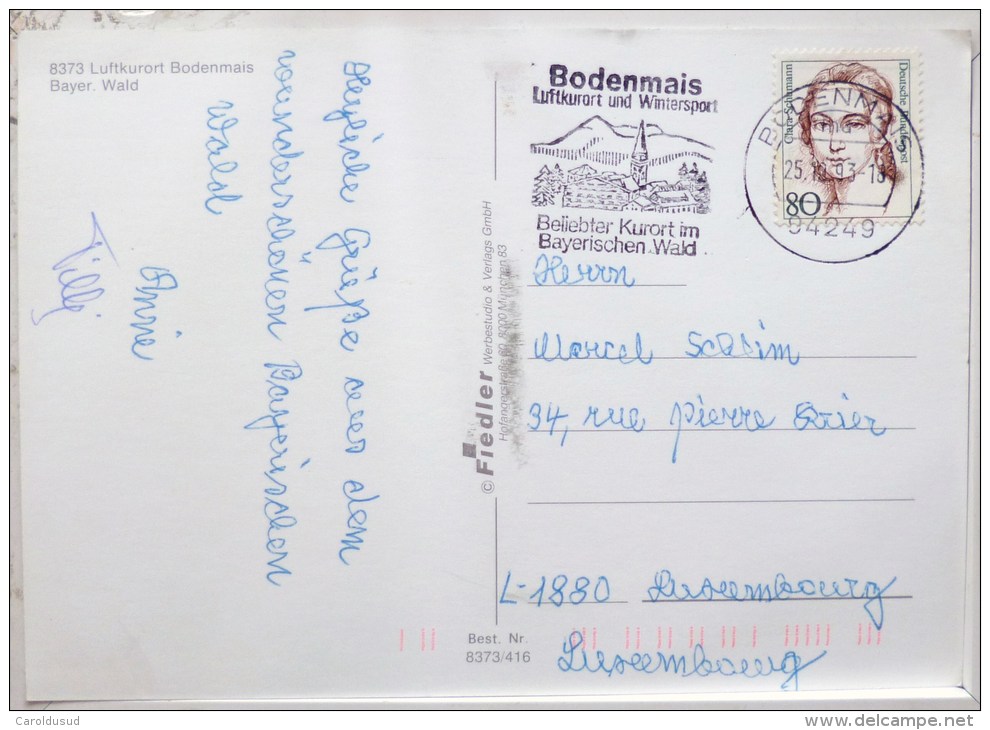 8373 Luftkurort Bodenmais
Bayer. Wald
Herzliche Grüße aus dem
wunderschönen Bayerischen
Wald
Annie
Tilly
© Fiedler Werbestudio & Verlags GmbH
Hofangerstraße 80, 8000 München 83
Best. Nr.
8373/416
Bodenmais
Luftkurort und Wintersport
Beliebter Kurort im
Bayerischen Wald
BODENMAIS
25.10.93-18
94249
Clara Schumann
Deutsche Bundespost
80
Herrn
Marcel Schlim
34, rue Pierre Krier
L-1880 Luxembourg
Luxembourg
Caroldusud
www.delcampe.net